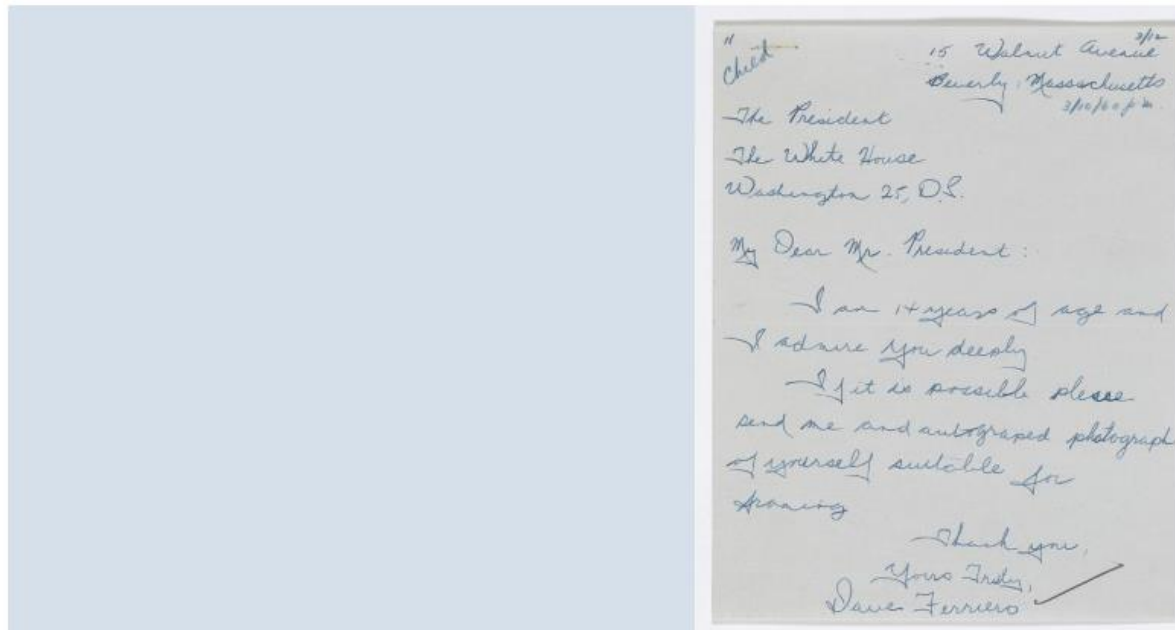 "
Child
3/12
15 Walnut Avenue
Beverly, Massachusetts
3/10/60 pm.
The President
The White House
Washington 25, D.S.
My Dear Mr. President:
I am 14 years of age and
I admire you deeply
If it is possible please
send me and autograped photograph
of yourself suitable for
framing
Thank you,
Yours Truly,
Dave Ferriero